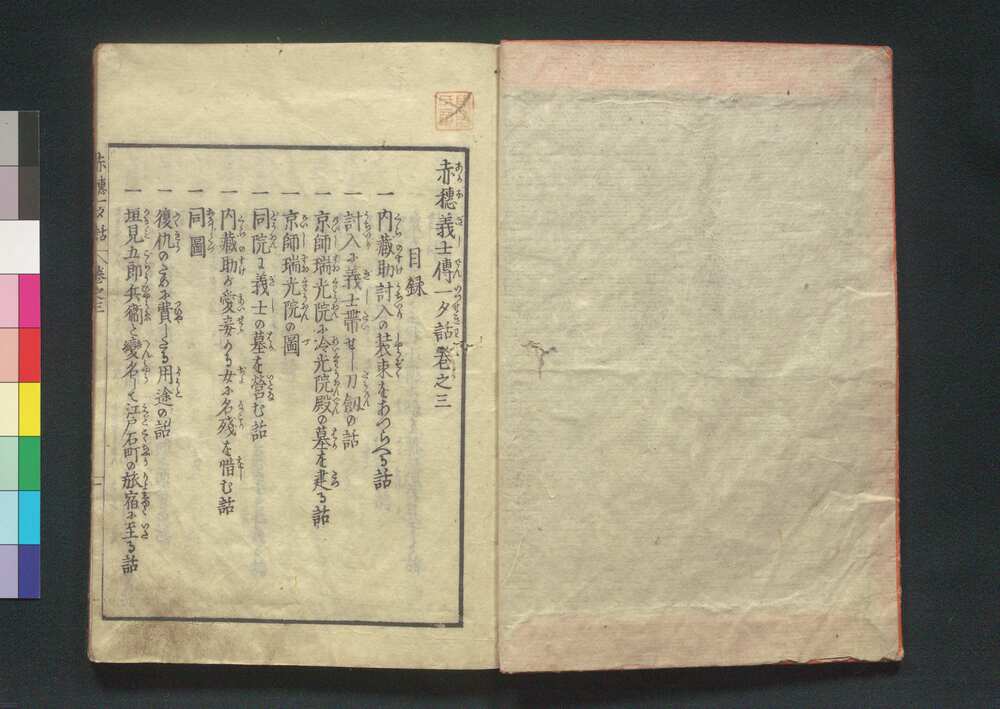 赤穗義士傳一夕話巻之三
目録
一 内藏助討入の装束をあつらへる話
一 討入に義士帯せし刀劔の話
一 京師瑞光院に冷光院殿の墓を建る話
一 京師瑞光院の圖
一 同院に義士の墓を營む話
一 内藏助が愛妾かる女に名殘を惜む話
一 同圖
一 復仇のために費したる用途の話
一 垣見五郎兵衞と變名して江戸石町の旅宿に至る話
赤穗一夕話 巻之三 一